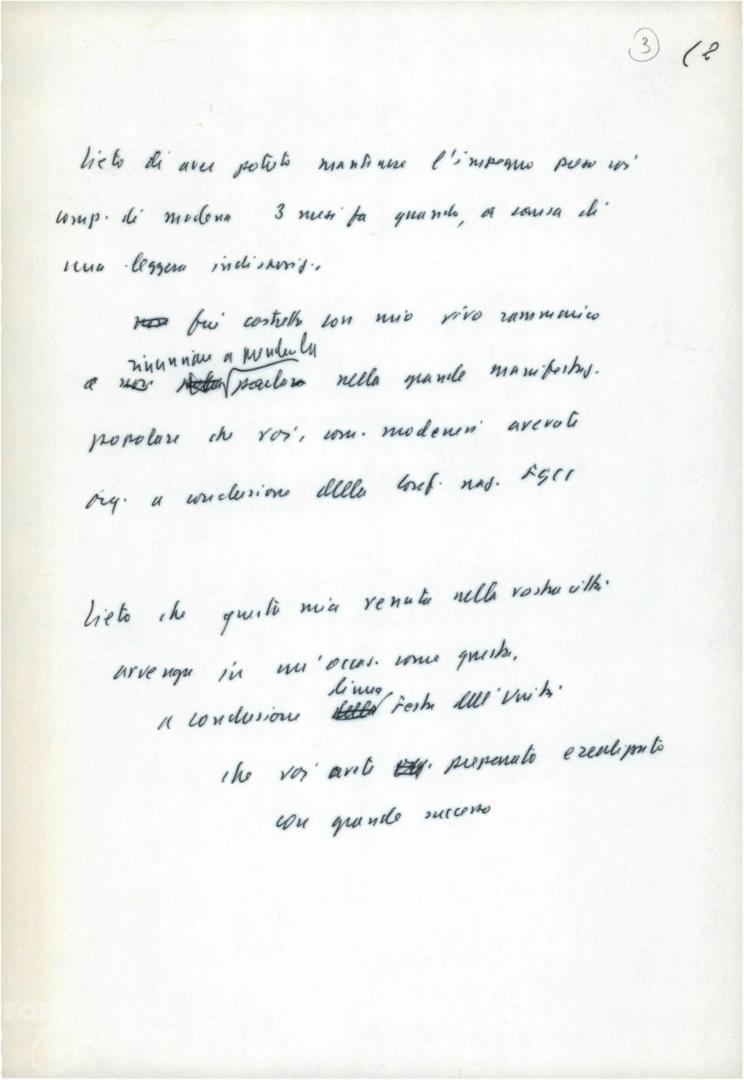 3 (2
Lieto di aver potuto mantenere l'impegno preso coi
comp. di Modena 3 mesi fa quando, a causa di
una leggera indisposiz.,
fui costretto con mio vivo rammarico
rinunciare a prendere la
a parlare nella grande manifestaz.
popolare che voi, com. modenesi avevate
org. a conclusione della Conf. naz. FGCI
Lieto che questa mia venuta nella vostra città
avvenga in un'occas. come questa,
di una
a conclusione della Festa dell'Unità
che voi avete preparato e realizzato
con grande successo